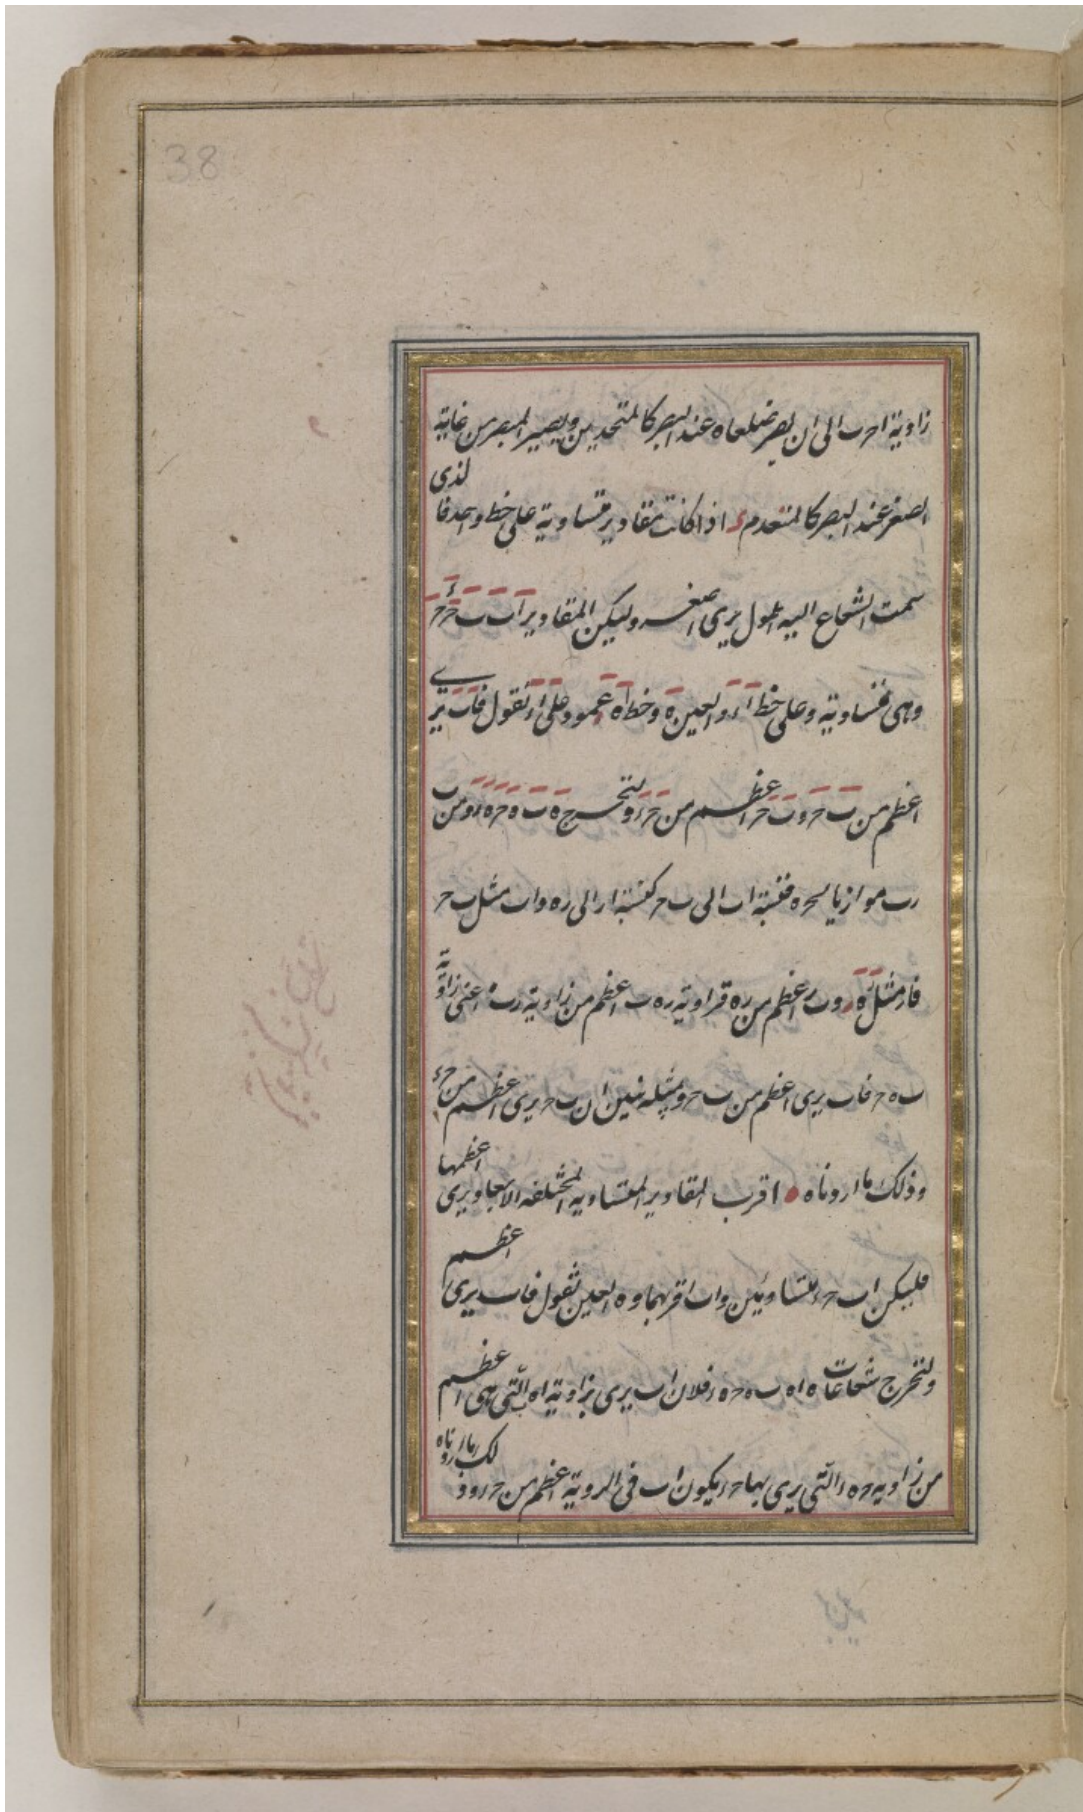 38
زاوية احب الى ان يصير ضلعاه عند البصر كالمتحدين ويصير المبصر من غاية
الصغر عند البصر كالمنعدم د اذا كانت مقادير متساوية على خط واحد فالذى
سمت الشعاع اليه اطول يرى اصغر وليكن المقادير اب ب ح ح د
وهى متساوية وعلى خط اد والعين ه وخط اه عمود على اد نقول فاب يرى
اعظم من ب ح و ب ح اعظم من ح د ولنخرج ه ب ه ح ه د ومن ب
رب موازيا لـ ح ه فنسبة اب الى ب ح كنسبة ار الى ره و اب مثل ب ح
فار مثل ره و ب ر اعظم من ره فزاوية ره ب اعظم من زاوية ر ب ه اعنى زاوية
ب ه ح فاب يرى اعظم من ب ح وبمثله نبين ان ب ح يرى اعظم من ح د
وذلك ما اردناه ه اقرب المقادير المتساويه المختلفه الابعاد يرى اعظمها
فليكن اب ح د متساويين و اب اقربهما و ه العين نقول فاب يرى اعظم
ولنخرج شعاعات ه ا ه ب ه ح ه د فلان اب يرى بزاوية ا ه ب التى هى اعظم
من زاويه ح ه د التى يرى بها ح د يكون اب فى الروية اعظم من ح د وذلك ما اردناه